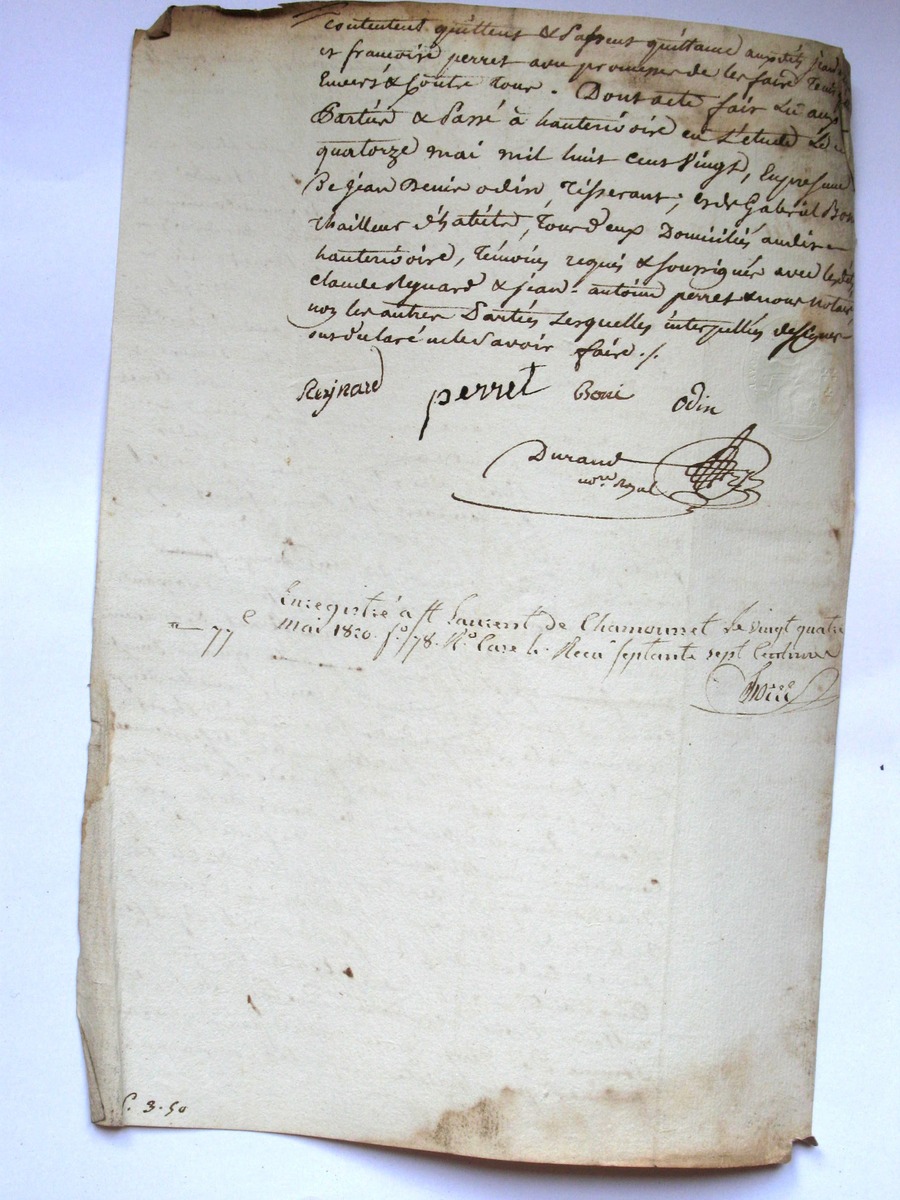 contentent quittent & Passent quittance auxdits jean
et francoise perret avec promesse de les faire Tenir
Envers & Contre Tous. Dont acte fait Lu aux
Parties & Passé à hauterivoire en L'étude Le
quatorze mai mil huit cent Vingt, En presence
De jean Denis odin, Tisserant, et de Gabriel Boni
thailleur d'habits, Tous d'eux Domiciliés audit
hauterivoire, Témoins requis & soussignés avec lesdits
claude Reynard & jean-antoine perret & nous notaire
non les autres Parties Lesquelles interpellées de signer
ont déclaré ne le Savoir faire ./.
Reynard perret Boni Odin
Durand
nore Royal
Enregistré a St Laurent de Chamousset le vingt quatre
mai 1820. fo 78. Ro Case 4. Recu septante sept Centimes
77 c
3.50